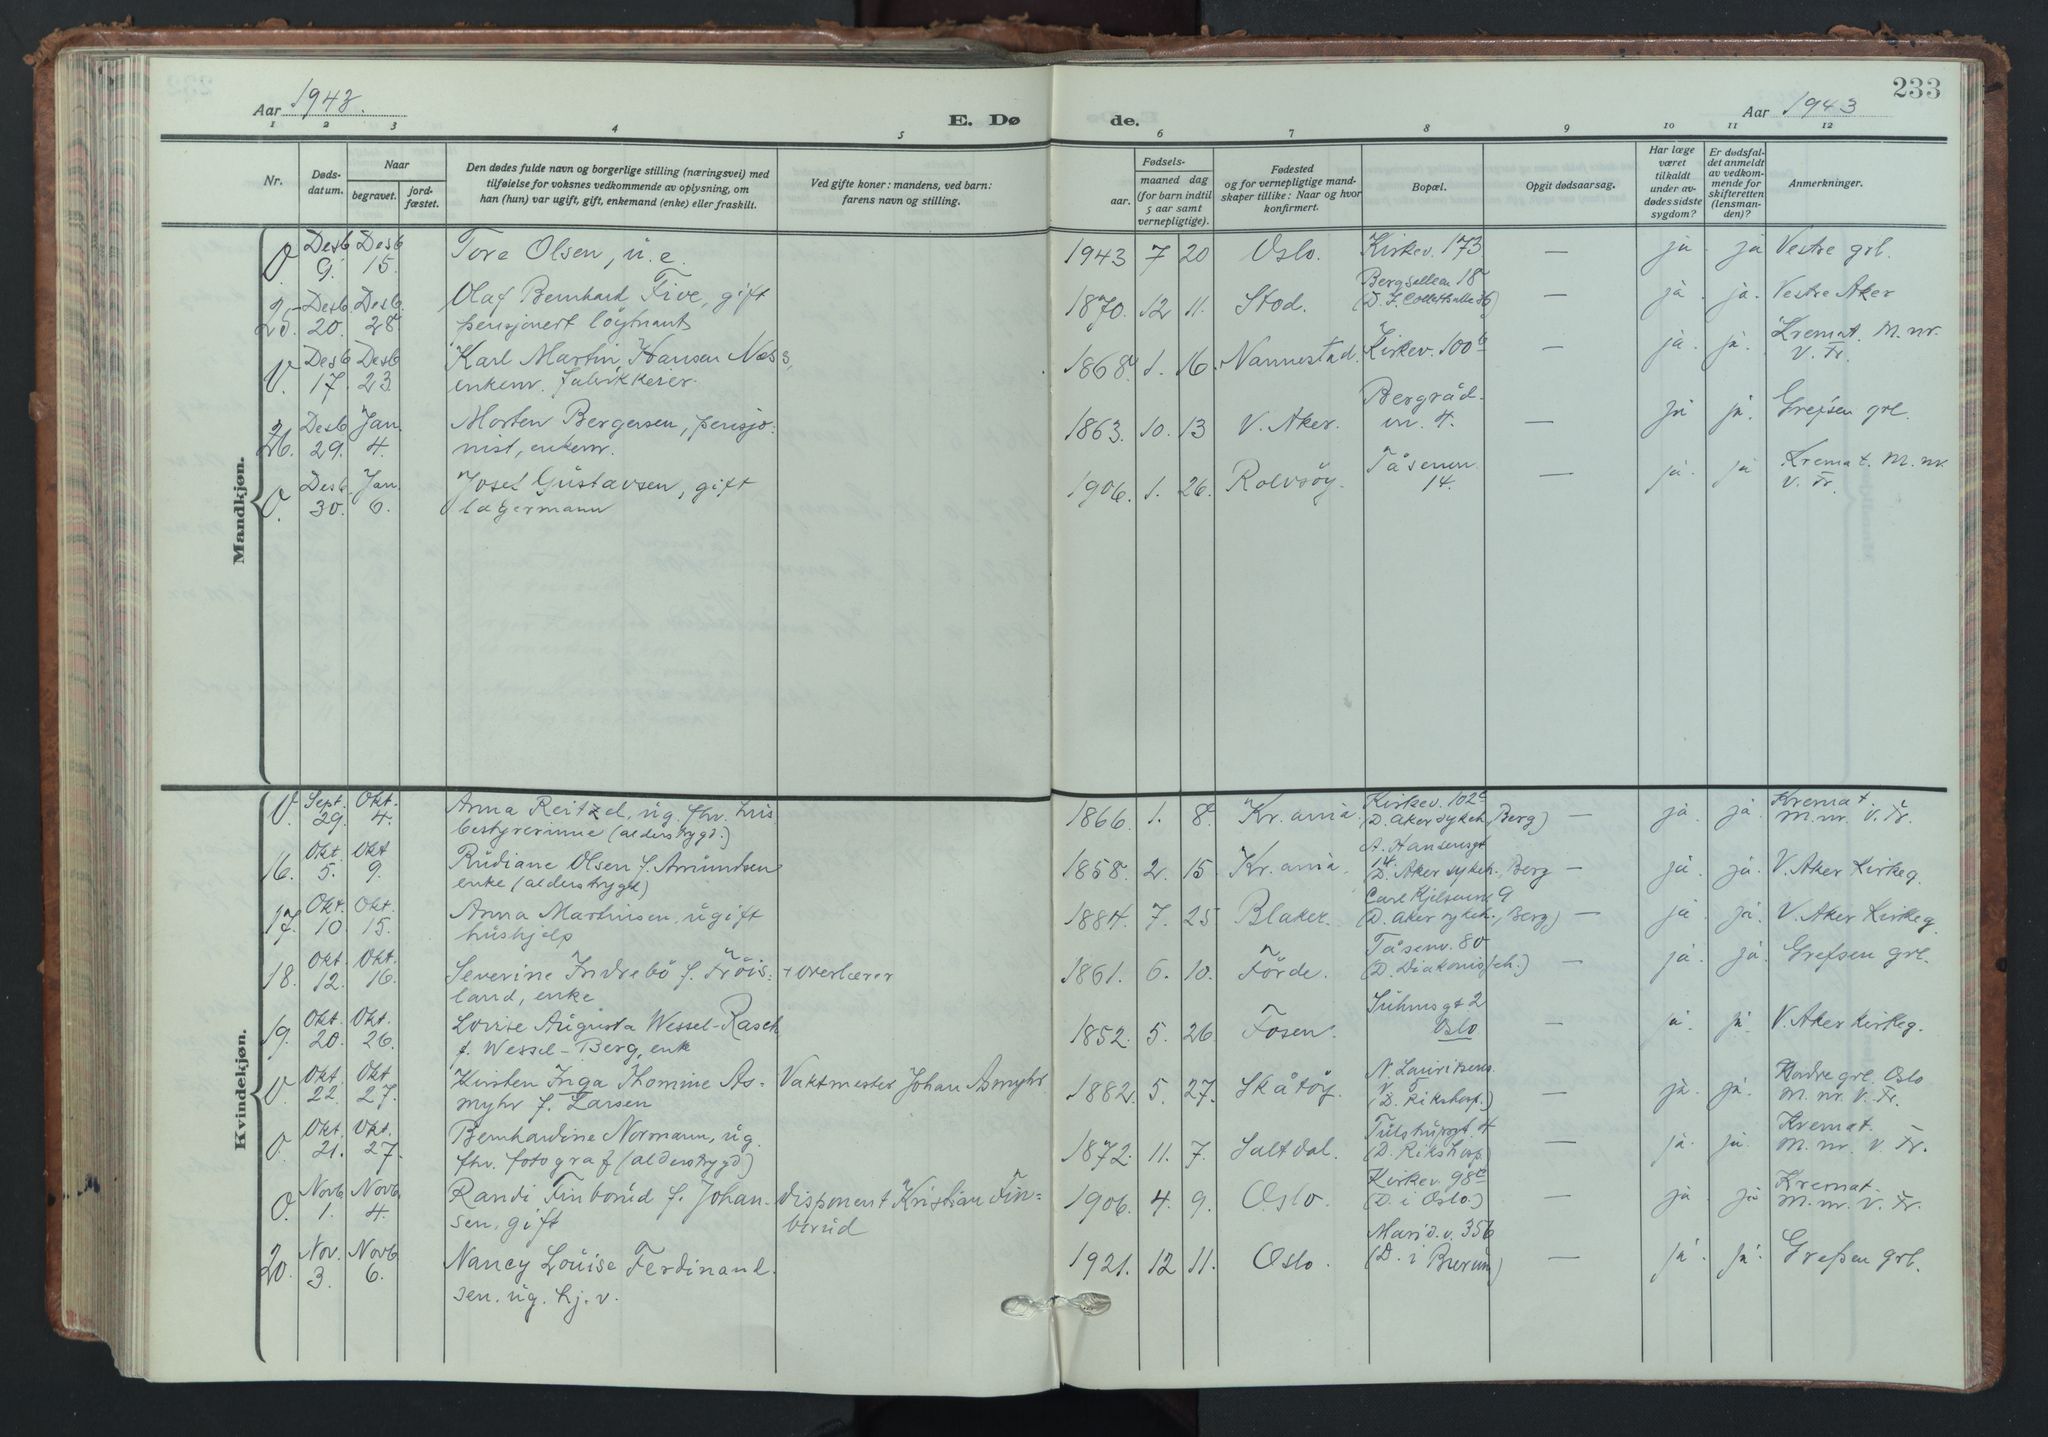 233
Aar 1943.
E. Dø
de.
Aar 1943
1 2 3 4 5 6 7 8 9 10 11 12
Nr.
Døds-
datum.
Naar
begravet.
jord-
fæstet.
Den dødes fulde navn og borgerlige stilling (næringsvei) med
tilføielse for voksnes vedkommende av oplysning, om
han (hun) var ugift, gift, enkemand (enke) eller fraskilt.
Ved gifte koner: mandens, ved barn:
farens navn og stilling.
Fødsels-
aar.
maaned dag
(for barn indtil
5 aar samt
vernepligtige).
Fødested
og for vernepligtige mand-
skaper tillike: Naar og hvor
konfirmert.
Bopæl.
Opgit dødsaarsag.
Har læge
været
tilkaldt
under av-
dødes sidste
sygdom?
Er dødsfal-
det anmeldt
av vedkom-
mende for
skifteretten
(lensman-
den)?
Anmerkninger.
Mandkjøn.
O. Desb 9. Desb 15. Tore Olsen, u. e. 1943 7 20 Oslo. Kirkev. 173 — ja ja Vestre grl.
25. Desb. 20. Desb. 28. Olaf Bernhard Five, gift
pensjonert löytnant 1870. 12 11. Stod. Bergsalleen 18 — ja. ja. Vestre Aker
V. Desb 17. Desb 23. Karl Martin Hansen Næss,
enkem. fabrikkeier. 1868. 1. 16. Nannestad. Kirkev. 100b — ja. ja. Kremat. M. nr.
V. Fr.
26. Desb 29. Jan. 4. Morten Bergersen, pensjo-
nist, enkem. 1863. 10. 13 V. Aker. Bergråd-
vn. 4. — ja ja. Grefsen grl.
O. Desb. 30. Jan. 6. Josef Gustavsen, gift
lagermann 1906. 1. 26. Rolvsöy. Tåsenvn.
14. — ja. ja Kremat. M. nr.
V. Fr.
Kvindekjøn.
V. Sept. 29. Okt. 4. Anna Reitzel, ug. fhv. hus
bestyrerinne (alderstrygd.) 1866. 1. 8. Kr.ania Kirkev. 102c
(D. Aker sykeh., Berg) — ja. ja. Kremat
M. nr. V. Fr.
16. Okt. 5. Okt 9. Rudiane Olsen f. Amundsen
enke (alderstrygd) 1858. 2. 15 Kr.ania. A. Hansensgt
14. D. Aker sykeh., Berg — ja. ja. V. Aker Kirkeg.
17. Okt. 10 Okt. 15. Anna Martinsen, ugift
hushjelp 1884. 7. 25 Blaker. Carl Kjelsens 9
(D. Aker sykeh., Berg) — ja ja. V. Aker Kirkeg
18. Okt. 12. Okt. 16. Severine Indrebö f. Fröis-
land, enke + overlærer 1861. 6. 10. Förde. Tåsenv. 80
(D. Diakonisseh.) ja. ja. Grefsen grl.
19. Okt. 20. Okt. 26. Lovise Augusta Wessel-Rasch
f. Wessel-Berg, enk 1852. 5. 26. Fosen. Suhmsgt 2
Oslo — ja. ja. V. Aker kirkeg.
V. Okt. 22. Okt 27. Kirsten Inga Thomine As-
myhr f. Larsen Vaktmester Johan Asmyhr 1882. 5. 27. Skåtöy. N. Lauritzens
v. 5
(D. Rikshosp.) — ja. ja. Nordre grl. Oslo
M. nr. V. Fr.
O. Okt. 21. Okt. 27. Bernhardine Normann, ug.
fhv. fotograf (alderstrygd) 1872. 11. 7. Saltdal. Tulshupsgt. 4
(D. Rikshosp) — ja. ja. Kremat.
M. nr. V. Fr.
O. Novb. 1. Novb. 4. Randi Finborud f. Johan-
sen, gift disponent Kristian Fin-
borud 1906. 4. 9. Oslo. Kirkev. 98b
(D. i Oslo.) — ja ja Kremat.
M. nr. V. Fr.
20. Nov. 3. Novb 6. Nancy Louise Ferdinand-
sen, ug. hj. v. 1921. 12 11. Oslo. Marid. v. 35b
(D. i Bærum) — ja. ja. Grefsen grl.